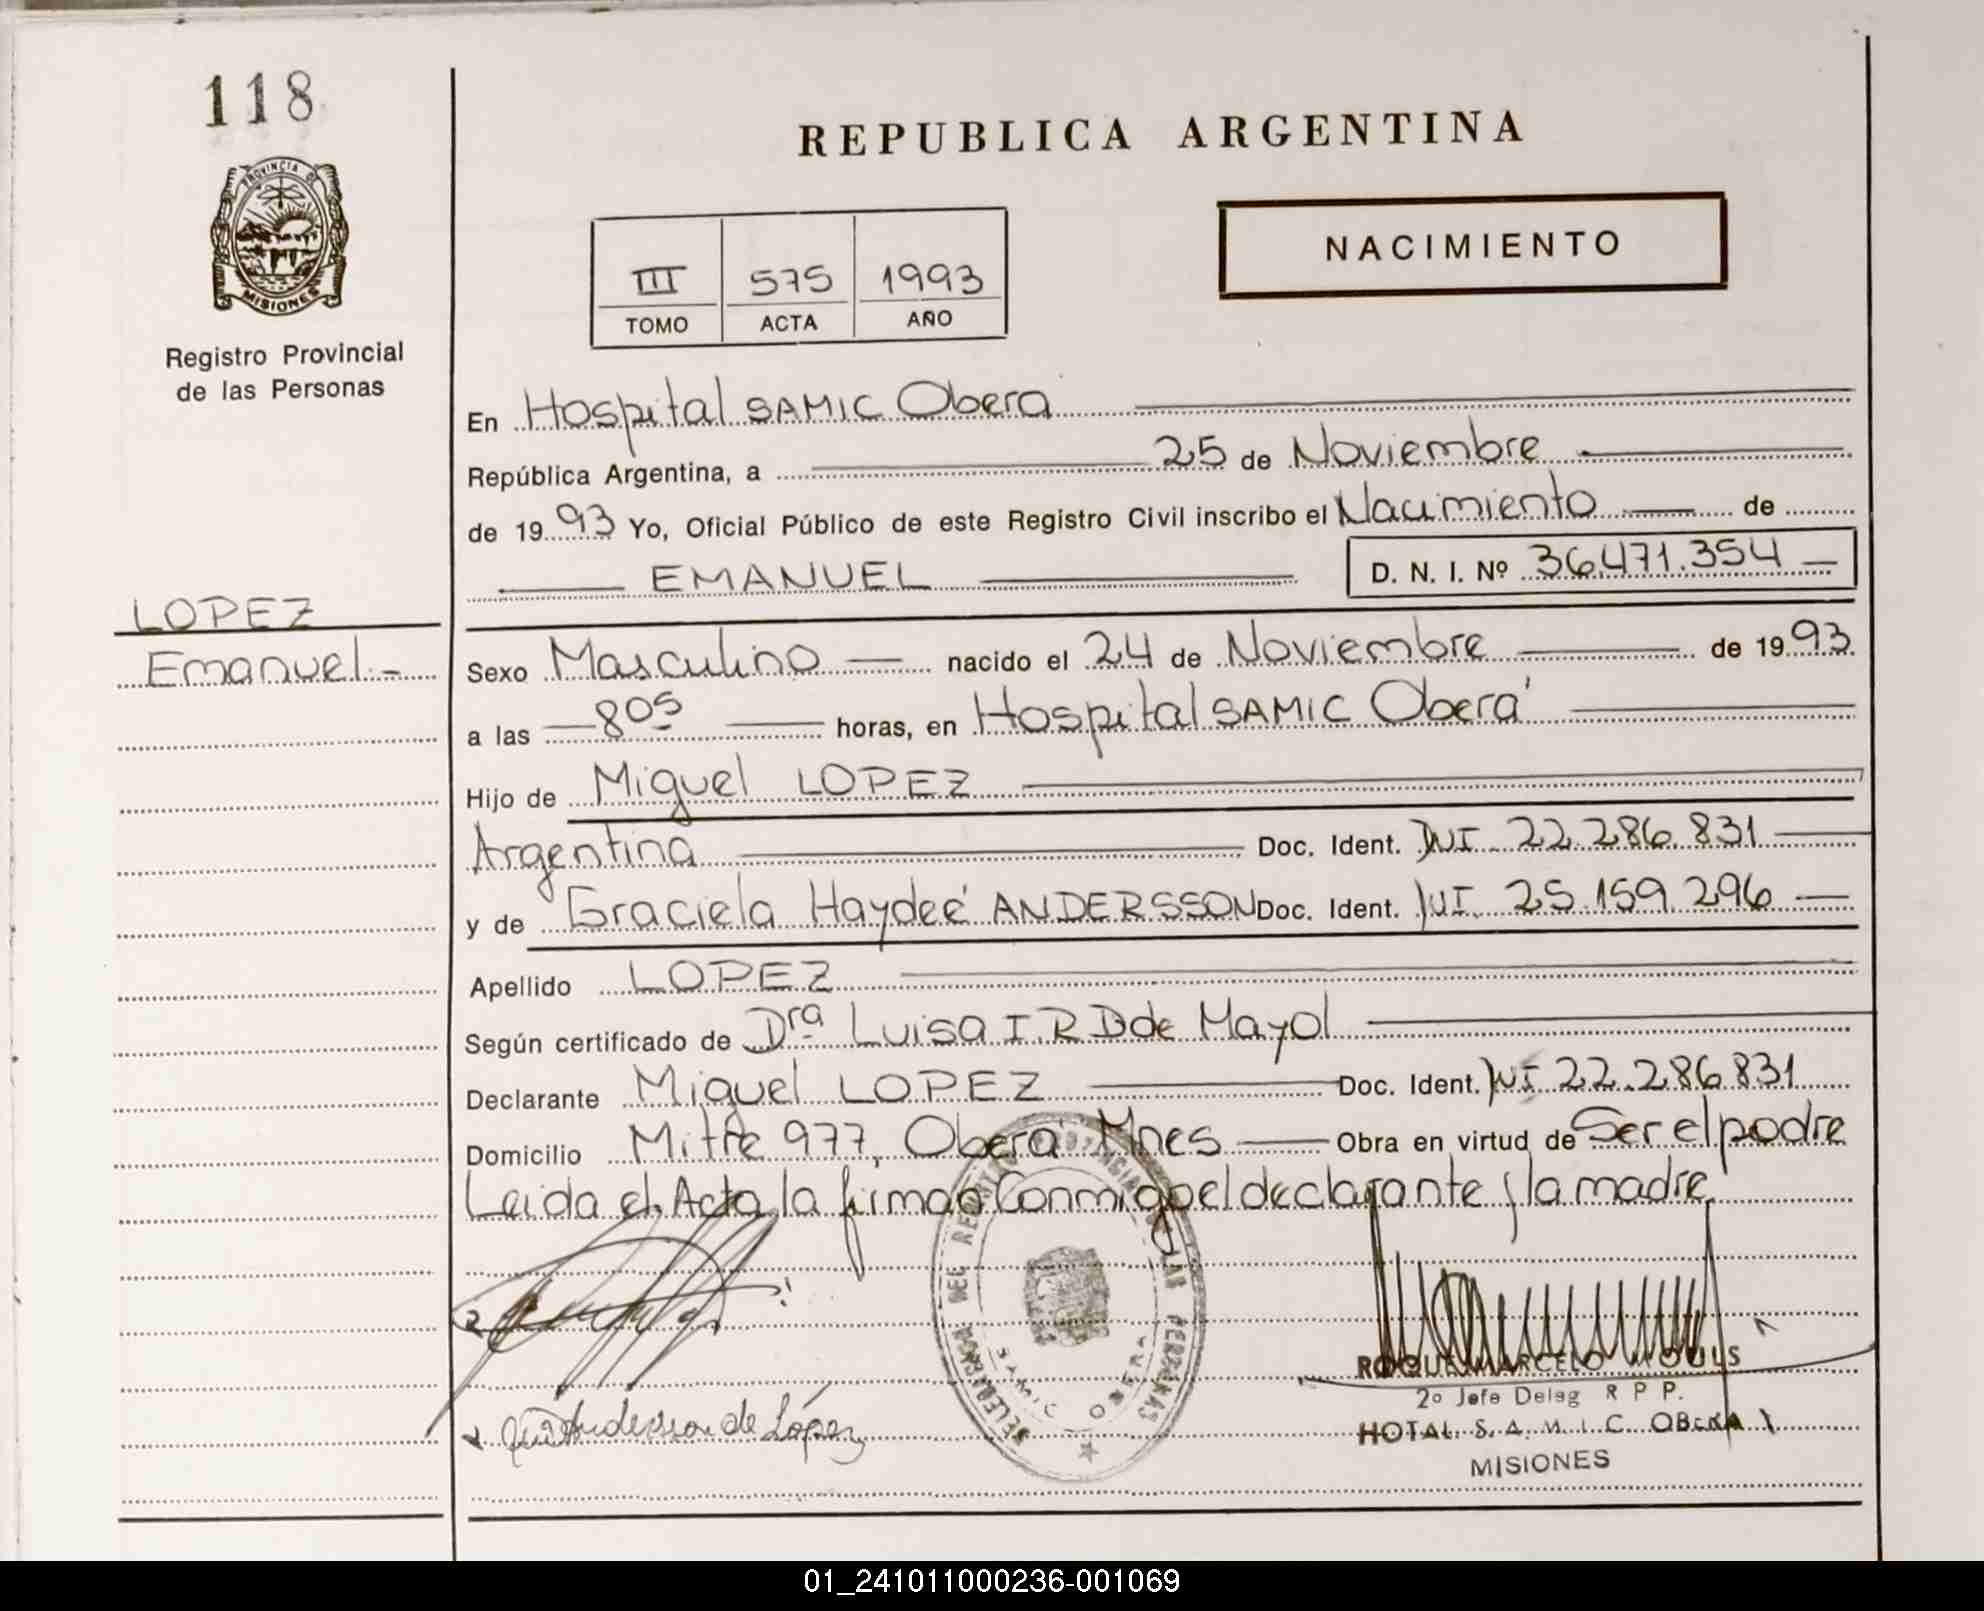 118
PROVINCIA DE
MISIONES
Registro Provincial
de las Personas
REPUBLICA ARGENTINA
NACIMIENTO
III 575 1993
TOMO ACTA AÑO
En Hospital SAMIC Obera
República Argentina, a 25 de Noviembre
de 1993 Yo, Oficial Público de este Registro Civil inscribo el Nacimiento de
EMANUEL D. N. I. Nº 36.471.354
LOPEZ
Emanuel.-
Sexo Masculino nacido el 24 de Noviembre de 1993.
a las 805 horas, en Hospital SAMIC Oberá
Hijo de Miguel LOPEZ
Argentina Doc. Ident. DNI 22.286.831
y de Graciela Haydeé ANDERSSON Doc. Ident. DNI. 25.159.296
Apellido LOPEZ
Según certificado de Dra Luisa I. R D de Mayol
Declarante Miguel LOPEZ Doc. Ident. DNI 22.286.831
Domicilio Mitre 977, Oberá Mnes Obra en virtud de Ser el padre
Leida el Acta, la firman Conmigo el declarante y la madre
Andersson de López
DEL REGISTRO PROVINCIAL DE LAS PERSONAS
SAMIC OBERA
ROQUE MARCELO
2º Jefe Deleg R P P.
HOTAL. S. A. M. I. C. OBERA
MISIONES
01_241011000236-001069